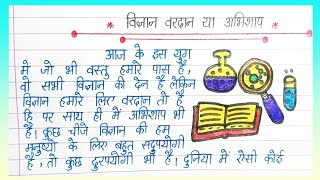 * विज्ञान वरदान या अभिशाप *
आज के इस युग
मे जो भी वस्तु हमारे पास है,
वो सभी विज्ञान की देन है लेकिन
विज्ञान हमारे लिए वरदान तो है
हि पर साथ ही में अभिशाप भी
है। कुछ चीजे विज्ञान की हम
मनुष्यो के लिए बहुत सदुपयोगी
है, तो कुछ दुरपयोगी भी है। दुनिया में ऐसी कोई